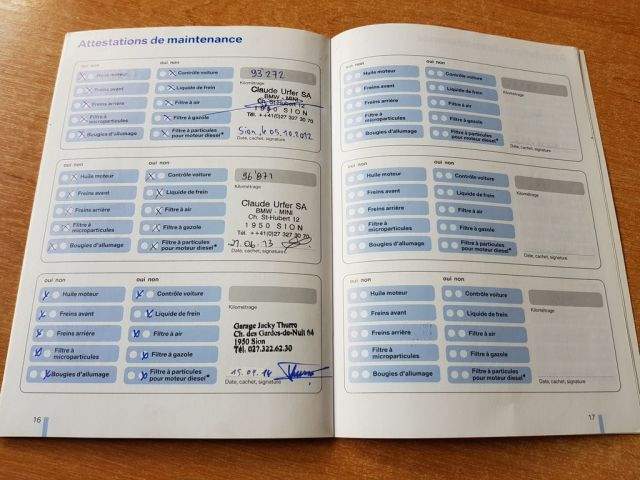 Attestations de maintenance
oui non
oui non
Huile moteur
Contrôle voiture
93 272
Kilométrage
Freins avant
Liquide de frein
Claude Urfer SA
BMW - MINI
Freins arrière
Filtre à air
Ch. St-Hubert 12
1950 SION
Filtre à microparticules
Filtre à gazole
Tél. ++41(0)27 327 30 70
Bougies d'allumage
Filtre à particules pour moteur diesel*
Sion, le 05.10.2012
Date, cachet, signature
oui non
oui non
Huile moteur
Contrôle voiture
96'871
Kilométrage
Freins avant
Liquide de frein
Claude Urfer SA
BMW - MINI
Freins arrière
Filtre à air
Ch. St-Hubert 12
1950 SION
Filtre à microparticules
Filtre à gazole
Tél. ++41(0)27 327 30 70
Bougies d'allumage
Filtre à particules pour moteur diesel*
27.06.13
Date, cachet, signature
oui non
oui non
Huile moteur
Contrôle voiture
Kilométrage
Freins avant
Liquide de frein
Garage Jacky Thurro
Freins arrière
Filtre à air
Ch. des Gardes-de-Nuit
1950 Sion
Filtre à microparticules
Filtre à gazole
Tél. 027.322.62.30
Bougies d'allumage
Filtre à particules pour moteur diesel*
15.09.14
Date, cachet, signature
16
oui non
oui non
Huile moteur
Contrôle voiture
Kilométrage
Freins avant
Liquide de frein
Freins arrière
Filtre à air
Filtre à microparticules
Filtre à gazole
Bougies d'allumage
Filtre à particules pour moteur diesel*
Date, cachet, signature
oui non
oui non
Huile moteur
Contrôle voiture
Kilométrage
Freins avant
Liquide de frein
Freins arrière
Filtre à air
Filtre à microparticules
Filtre à gazole
Bougies d'allumage
Filtre à particules pour moteur diesel*
Date, cachet, signature
oui non
oui non
Huile moteur
Contrôle voiture
Kilométrage
Freins avant
Liquide de frein
Freins arrière
Filtre à air
Filtre à microparticules
Filtre à gazole
Bougies d'allumage
Filtre à particules pour moteur diesel*
Date, cachet, signature
17